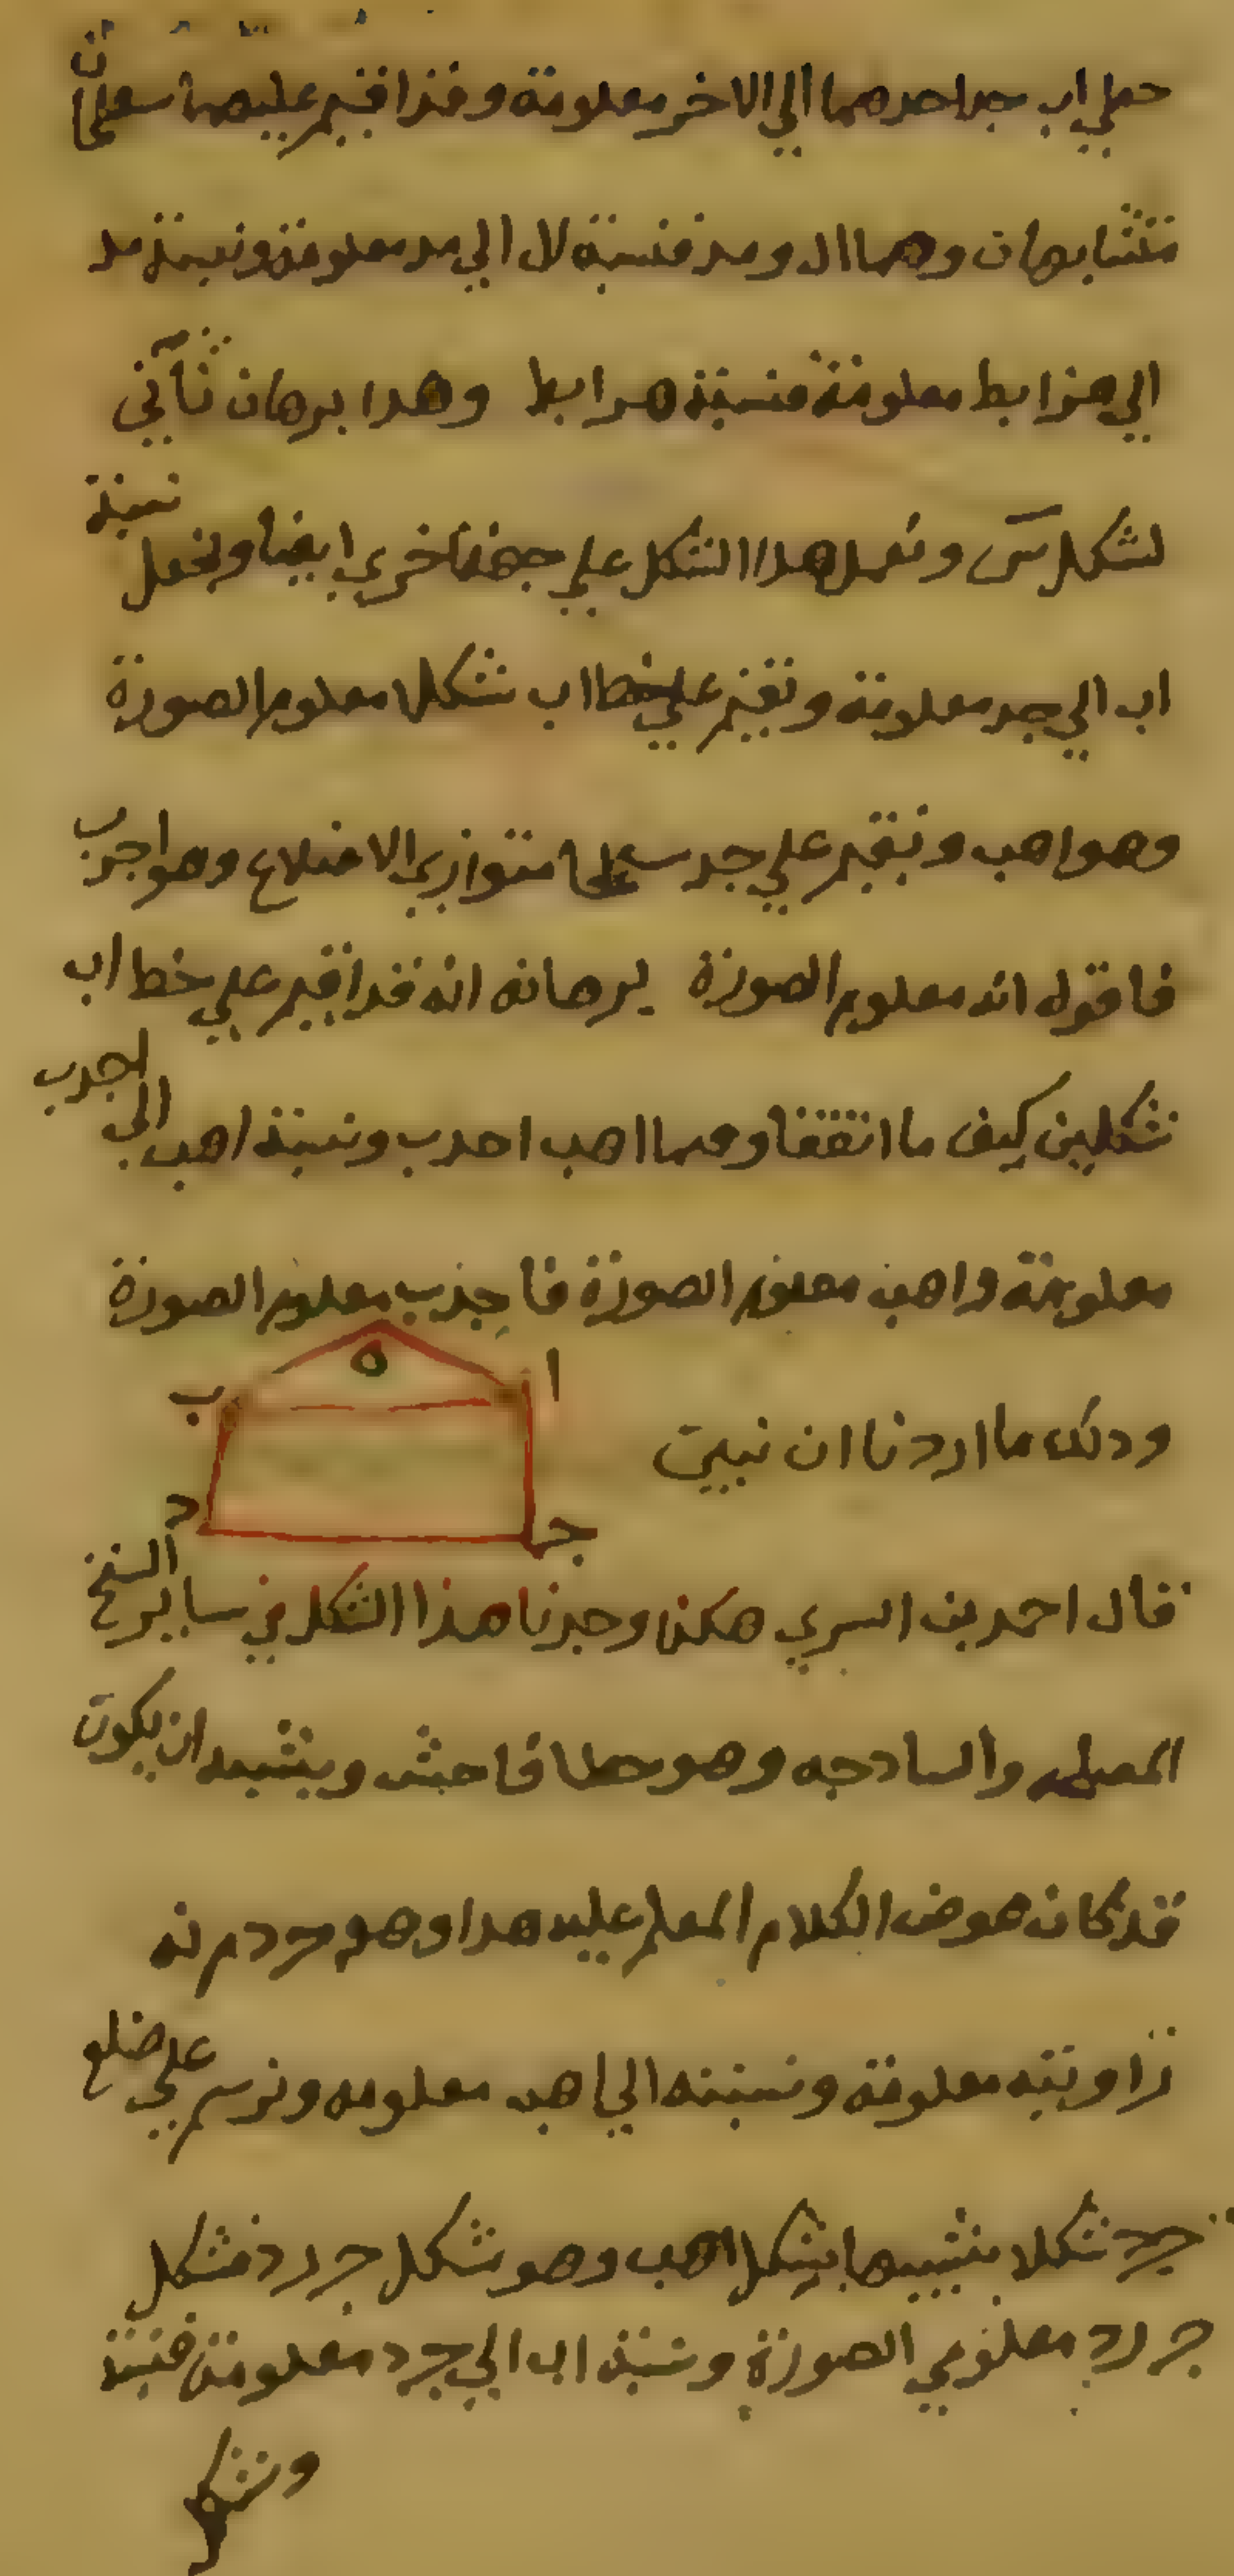 خطي اب جد احدهما الي الاخر معلومة وقد اقيم عليهما سطحان
متشابهان وهما ال ومد فنسبة ال الي مد معلومة ونسبة مد
الي هز ابط معلومة فنسبة هر ابط وهدا برهان ثآني
لشكل س ونعمل هدا الشكل علي جهة اخري ايضا ونجعل نسبة
اب الي جد معلومة ونقيم علي خط اب شكلا معلوم الصورة
وهو اهب ونقيم علي جد سطحا متوازي الاضلاع وهو اجدب
فاقول انه معلوم الصورة برهانه انه قد اقيم علي خط اب
شكلين كيف ما اتفقا وهما اهب احدب ونسبة اهب الي اجدب
معلومة واهب معلوم الصورة فاجدب معلوم الصورة
ودلك ما اردنا ان نبين
ا ه ب د ج
قال احمد بن السري هكذا وجدنا هذا الشكل في ساير النسخ
المصلحه والسادجه وهو خطا فاحش ويشبه ان يكون
قد كان عوض الكلام المعلم عليه هدا وهو جردم نه
زاويته معلومة ونسبته الي اهب معلومه ونرسم علي ضلع
جرد شكلا شبيها بشكل اهب وهو شكل جرد فشكل
جرد معلومي الصورة ونسبة اب الي جرد معلومة فنسبة
وشكل